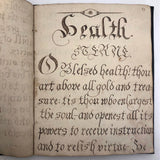 Health.
O Blessed health! thou
art above all gold and trea-
sure: tis thou who enlargest
the soul and openest all its
powers to receive instruction
and to relish virtue.